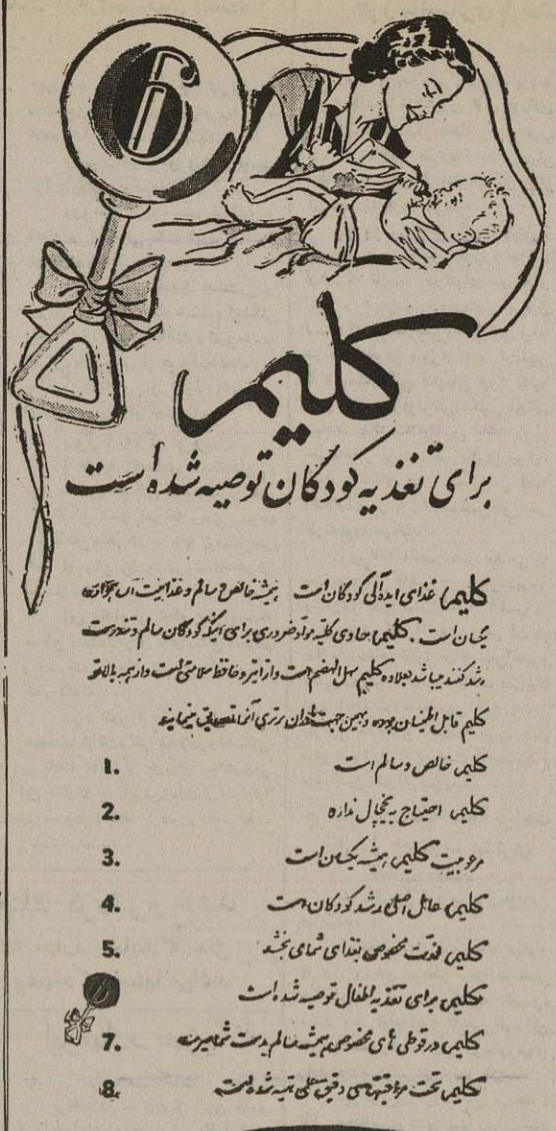 6
کلیم
برای تغذیه کودکان توصیه شده است
کلیم غذای ایده‌آلی کودکان است همیشه خالص و سالم و غذائیت آن همواره
یکسان است. کلیم حاوی کلیه مواد ضروری برای اینکه کودکان سالم و تندرست
رشد کنند میباشد بعلاوه کلیم سهل الهضم است و از اینرو حافظ سلامتی است و از همه بالاتر
کلیم قابل اطمینان بوده و بهمین جهت مادران برتری آنرا تصدیق مینمایند
1. کلیم خالص و سالم است
2. کلیم احتیاج به یخچال ندارد
3. مرغوبیت کلیم همیشه یکسان است
4. کلیم عامل اصلی رشد کودکان است
5. کلیم قدرت مخصوصی بغذای شما می بخشد
6 کلیم برای تغذیه اطفال توصیه شده است
7. کلیم در قوطی های مخصوص همیشه سالم بدست شما میرسد
8. کلیم تحت دقیق تهیه شده است